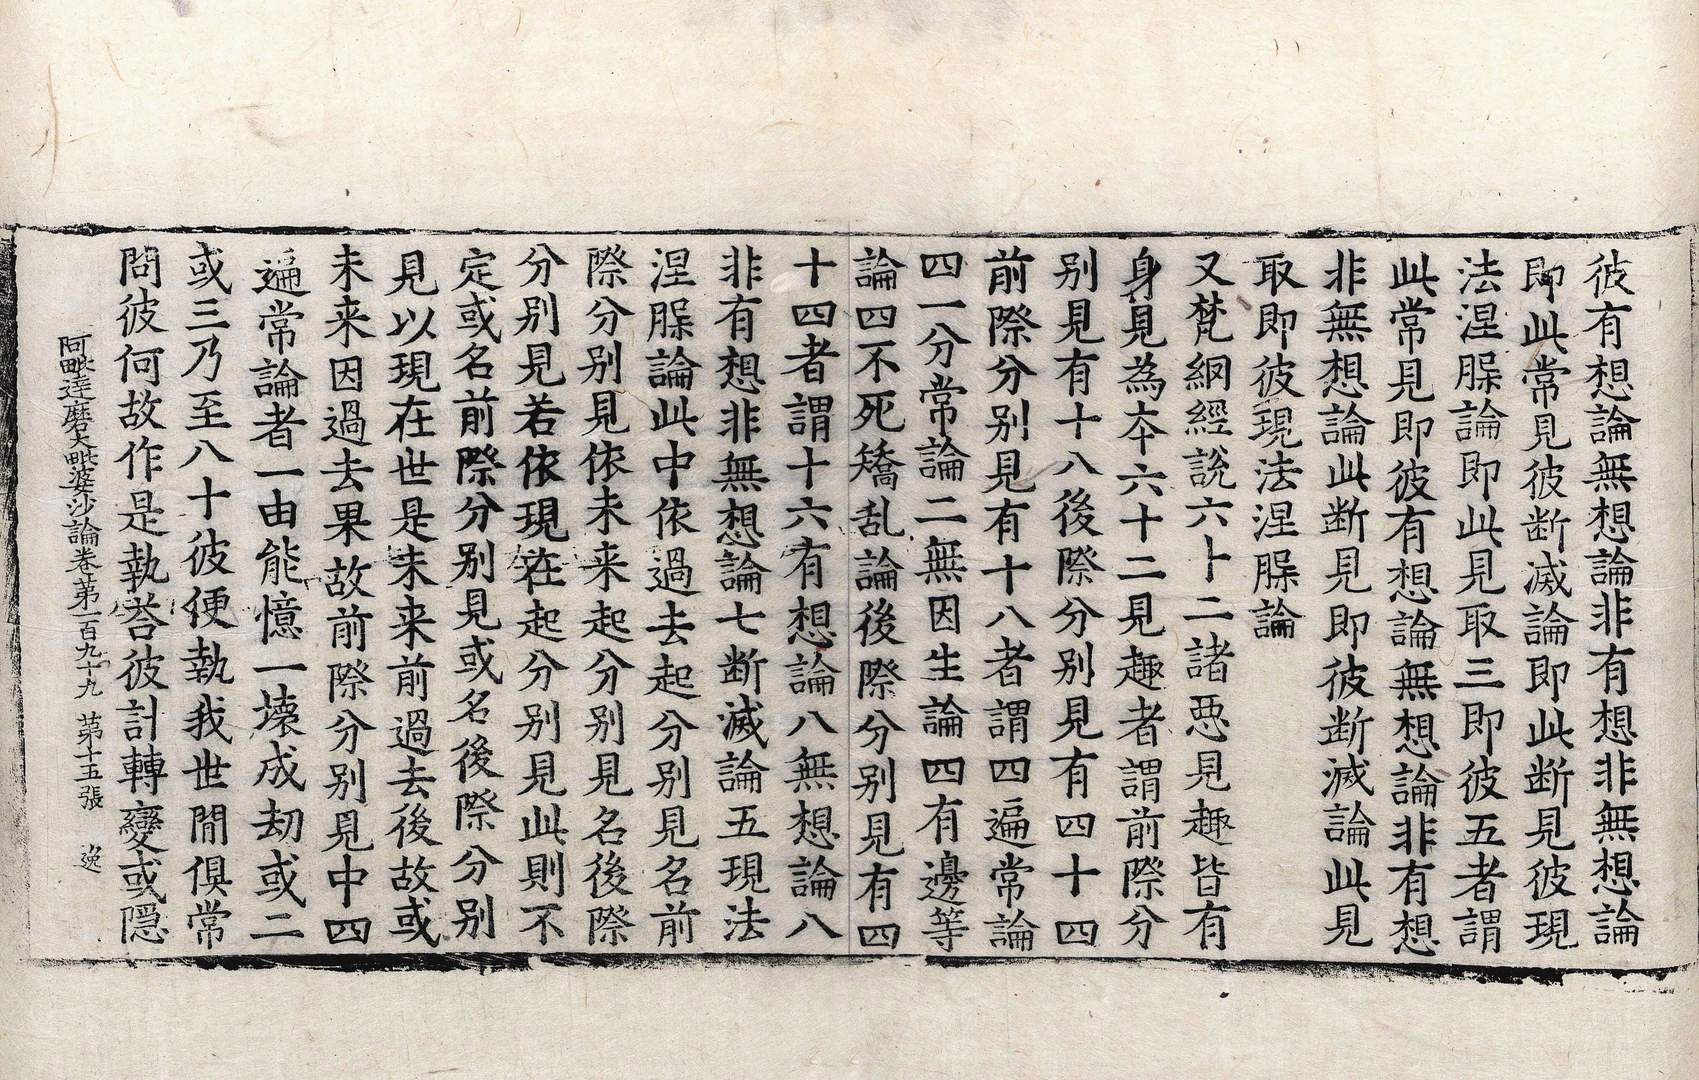 彼有想論無想論非有想非無想論
即此常見彼断滅論即此断見彼現
法涅槃論即此見取三即彼五者謂
此常見即彼有想論無想論非有想
非無想論此断見即彼断滅論此見
取即彼現法涅槃論
又梵網經說六十二諸惡見趣皆有
身見為本六十二見趣者謂前際分
别見有十八後際分别見有四十四
前際分别見有十八者謂四遍常論
四一分常論二無因生論四有邊等
論四不死矯乱論後際分别見有四
十四者謂十六有想論八無想論八
非有想非無想論七断滅論五現法
涅槃論此中依過去起分别見名前
際分别見依未来起分别見名後際
分别見若依現在起分别見此則不
定或名前際分别見或名後際分别
見以現在世是未来前過去後故或
未来因過去果故前際分别見中四
遍常論者一由能憶一壞成劫或二
或三乃至八十彼便執我世間俱常
問彼何故作是執荅彼計轉變或隱
阿毗達磨大毗婆沙論卷苐一百九十九 苐十五張 逸